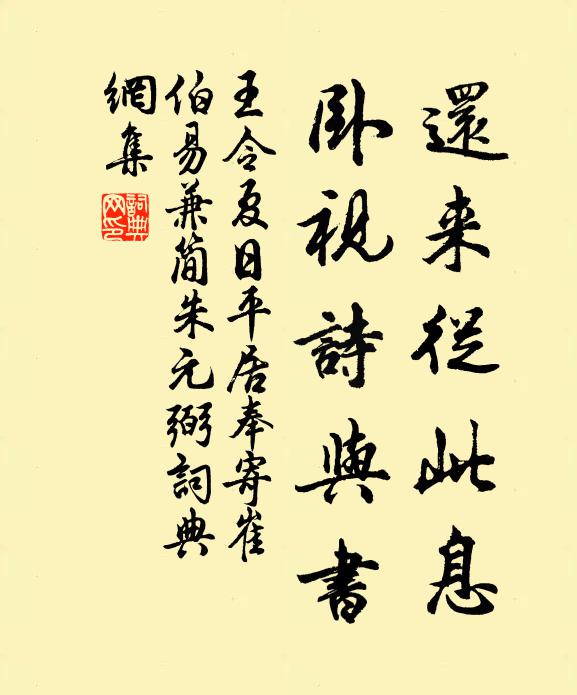 還来從此息
卧視詩與書
王令夏日平居奉寄崔
伯易兼簡朱元弼詞典
網集
詞典
网印